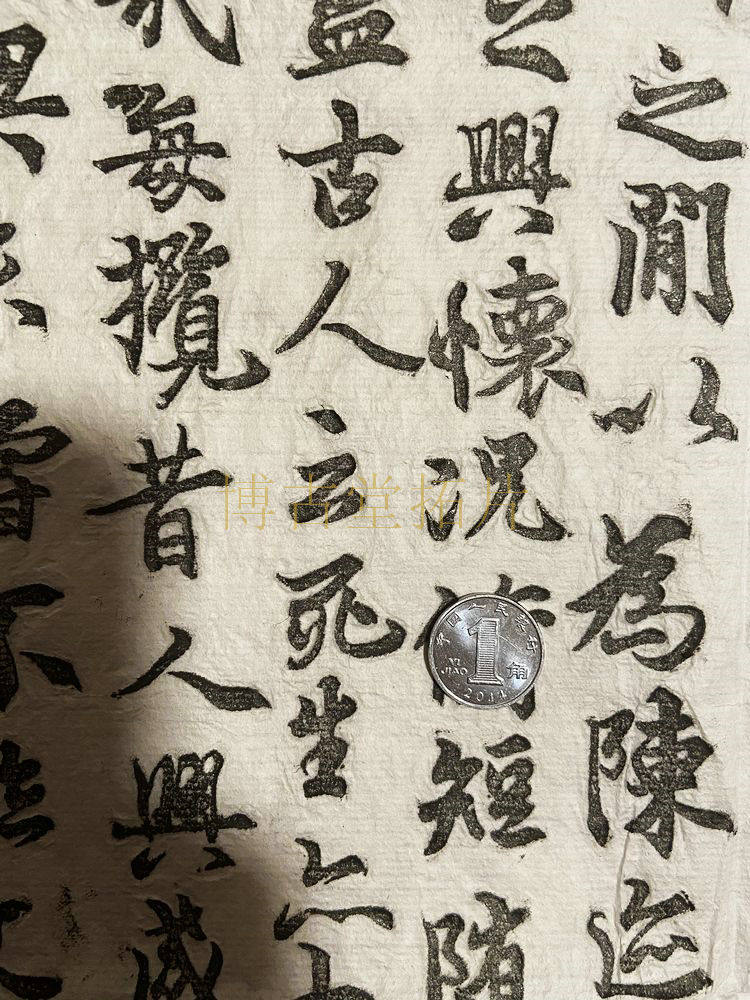 之閒以為陳迹
之興懷況短随
盡古人云死生亦
哉每攬昔人興感
嘗不
博古堂拓片
中国人民银行
1角
YI JIAO